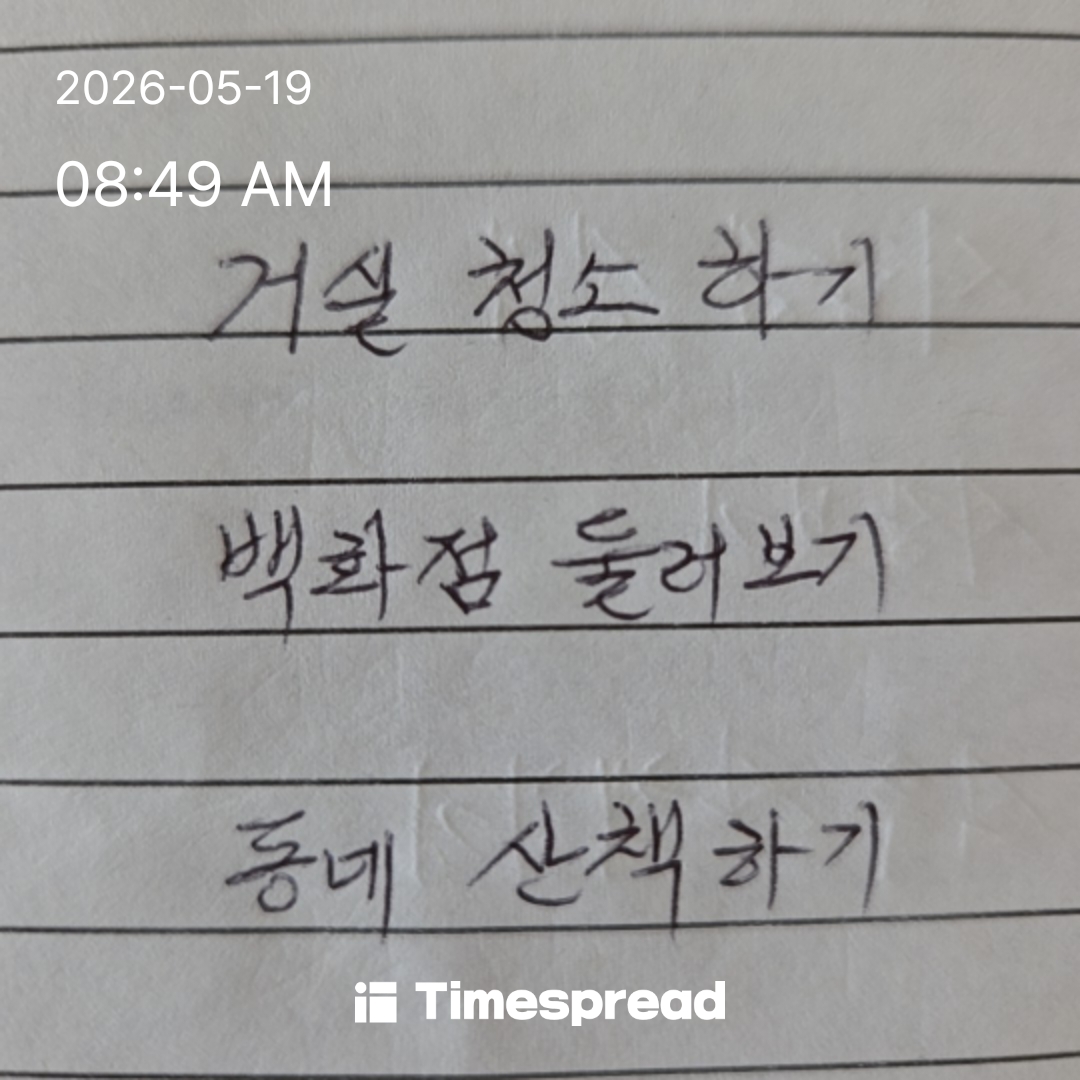 2026-05-19
08:49 AM
거실 청소 하기
백화점 둘러보기
동네 산책하기
Timespread